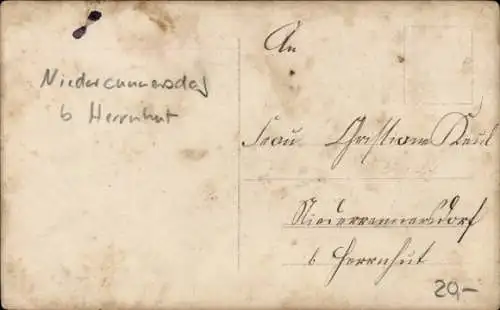 Niedercunnersdorf
b Herrnhut
An
Frau Christiane Keul
Niederrennersdorf
b Herrnhut
20,-